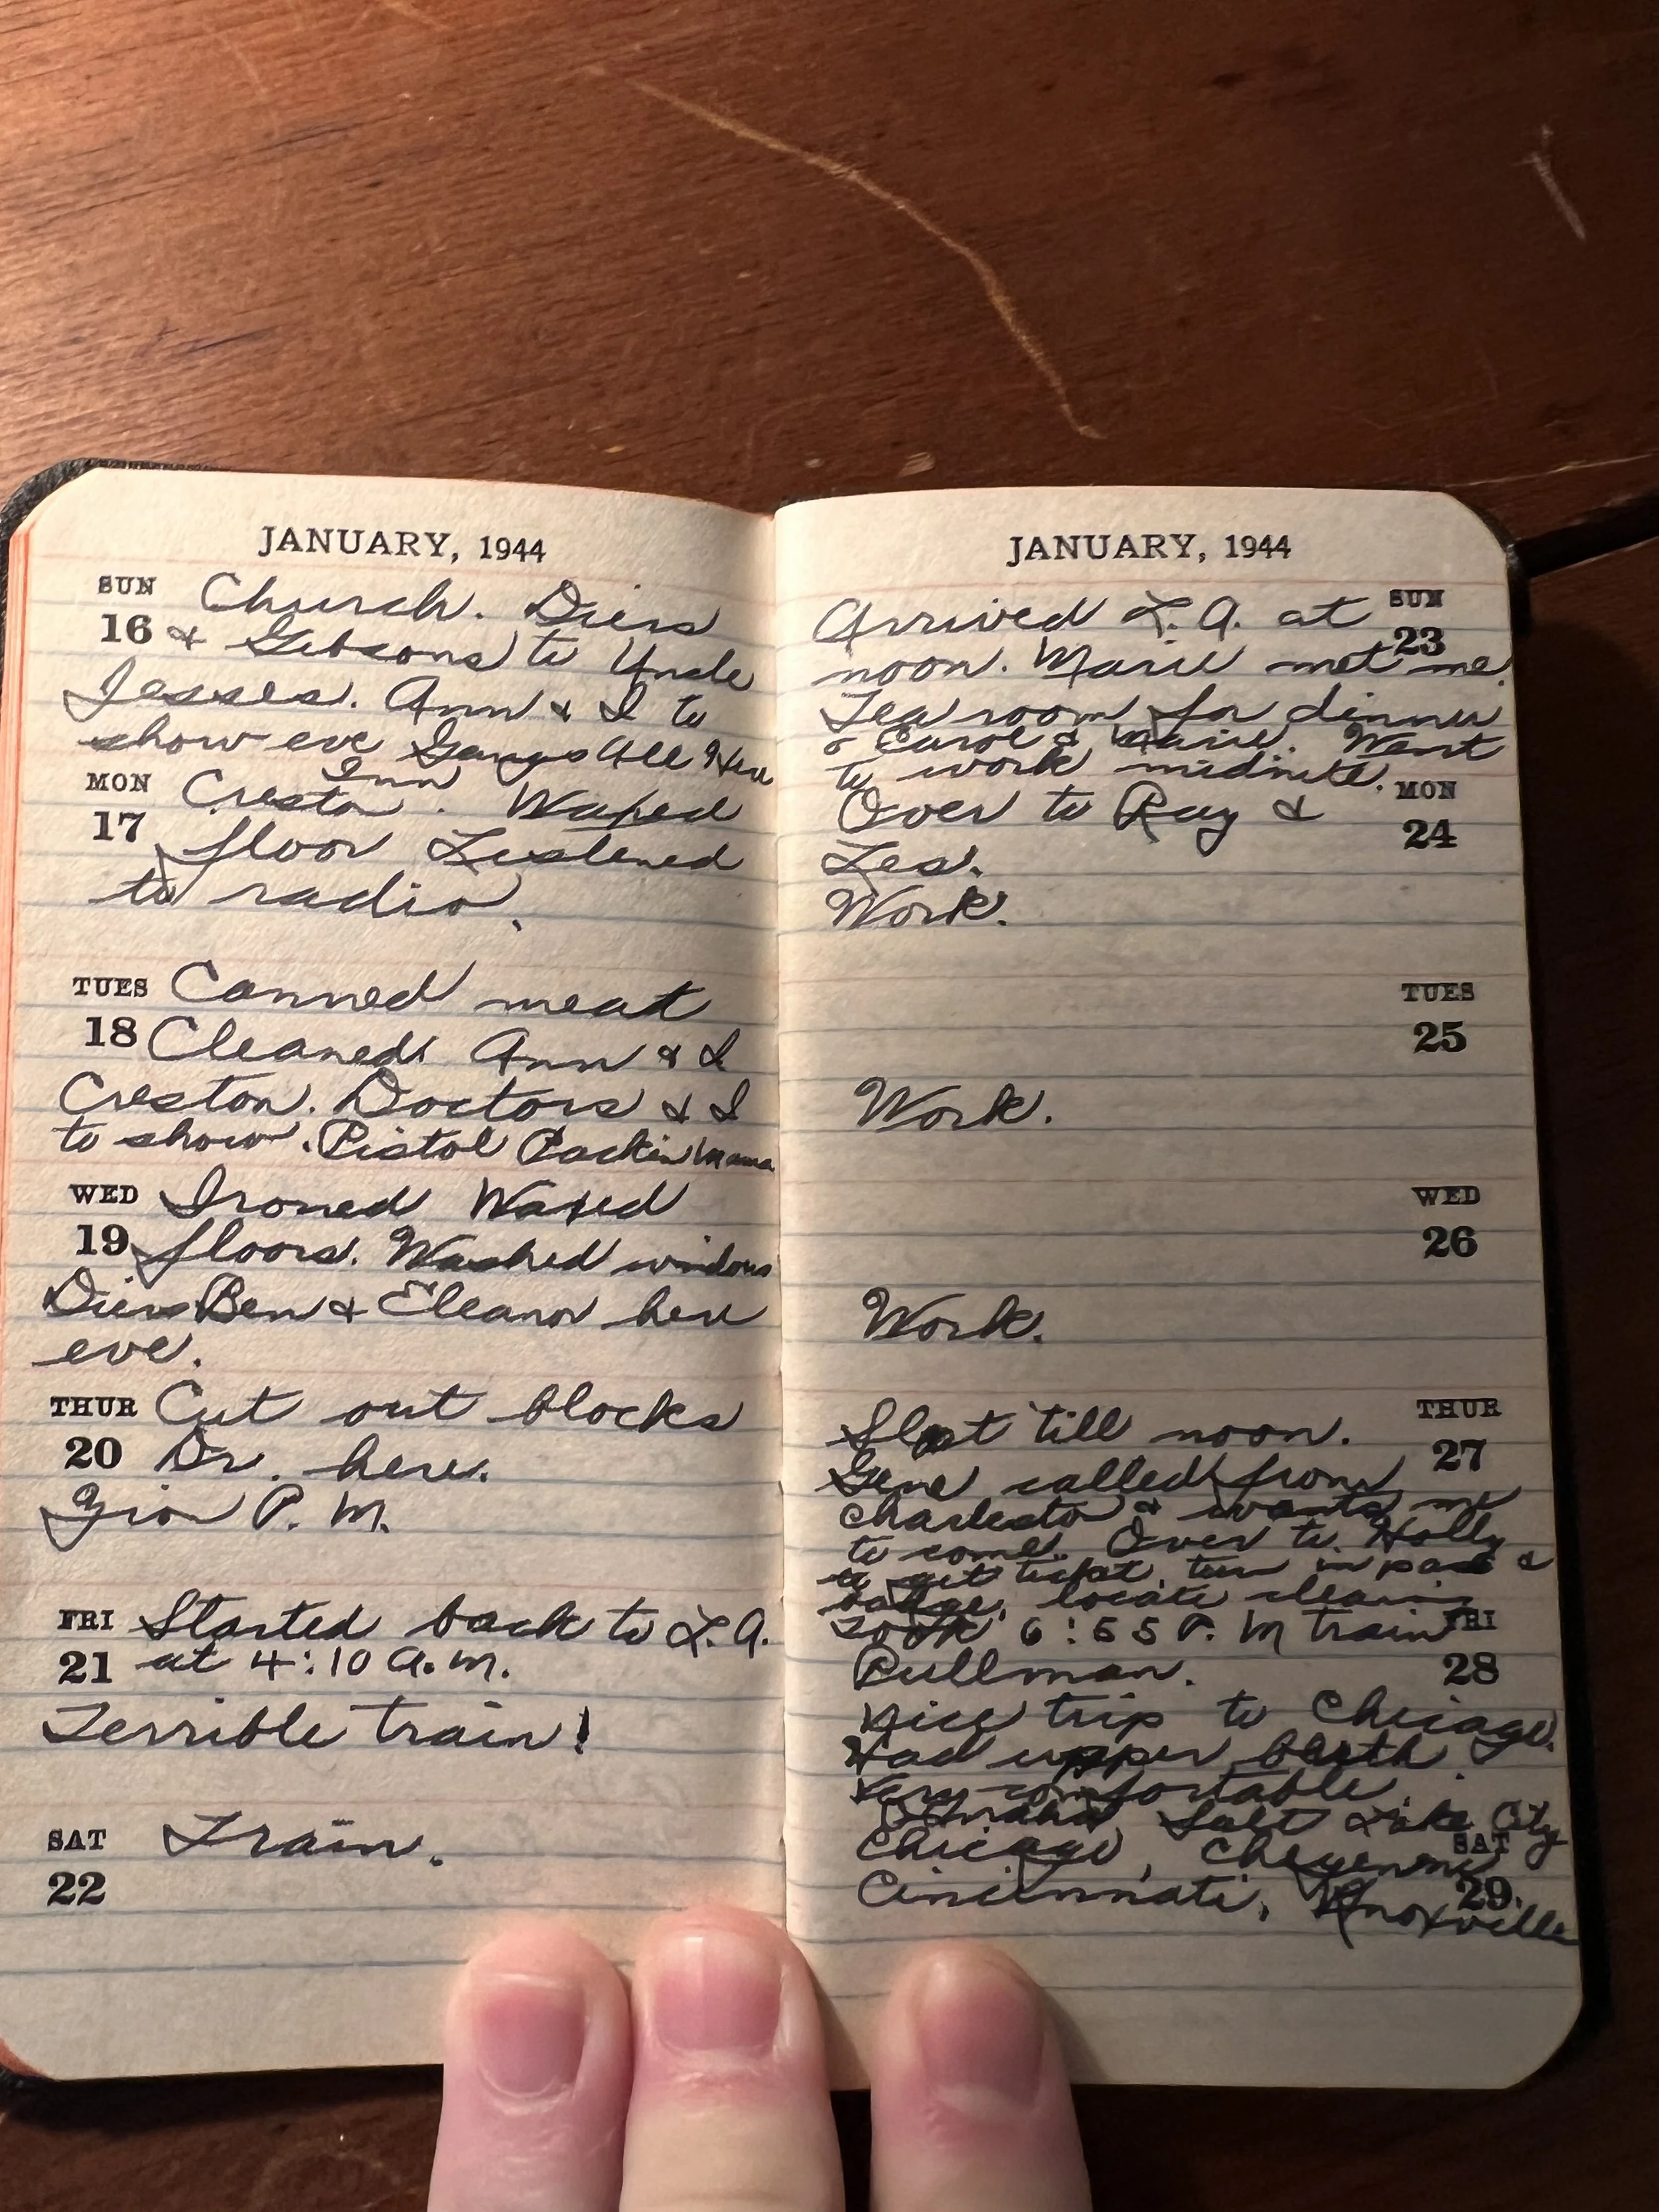 JANUARY, 1944
SUN Church. Diers
16 & Gibsons to Uncle
Jesses. Ann & I to
show eve Gangs All Here
MON Creston Inn. Waxed
17 floor Listened
to radio.
TUES Canned meat
18 Cleaned. Ann & I
Creston. Doctors & I
to show. Pistol Packin Mama
WED Ironed Waxed
19 floors. Washed windows
Diers Ben & Eleanor here
eve.
THUR Cut out blocks
20 Dr. here.
P. M.
FRI Started back to L.A.
21 at 4:10 A.M.
Terrible train!
SAT Train.
22
JANUARY, 1944
Arrived L.A. at SUN
23
noon. Marie met me.
Tea room for dinner
& Carol & Marie. Went
to work midnite.
Over to Ray & MON
24
Les'.
Work.
TUES
25
Work.
WED
26
Work.
Slept till noon. THUR
27
Gene called from
Charleston & wants me
to come. Over to Holly
to get ticket, turn in pass &
badge, locate
Took 6:55 P. M train FRI
Pullman. 28
Nice trip to Chicago.
Had upper berth.
Very comfortable.
Omaha, Salt Lake City
Chicago, Cheyenne SAT
Cincinnati, Knoxville 29